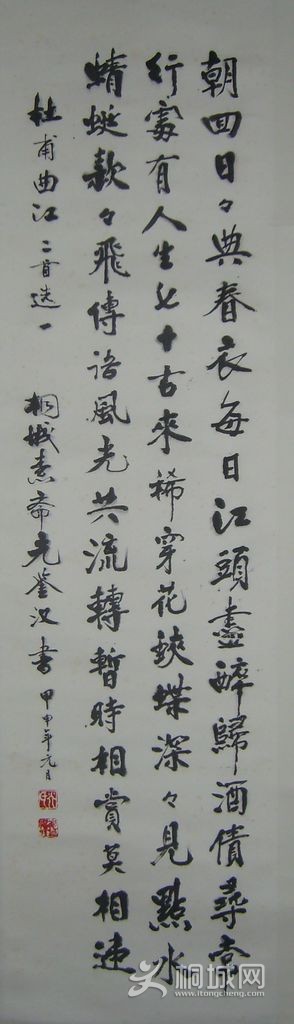 朝回日々典春衣每日江頭盡醉歸酒債尋常
行處有人生七十古來稀穿花蛺蝶深々見點水
蜻蜓款々飛傳語風光共流轉暫時相賞莫相違
杜甫曲江二首選一 桐城 齋 鑒汉書 甲申年元月
桐城网
www.itongcheng.com